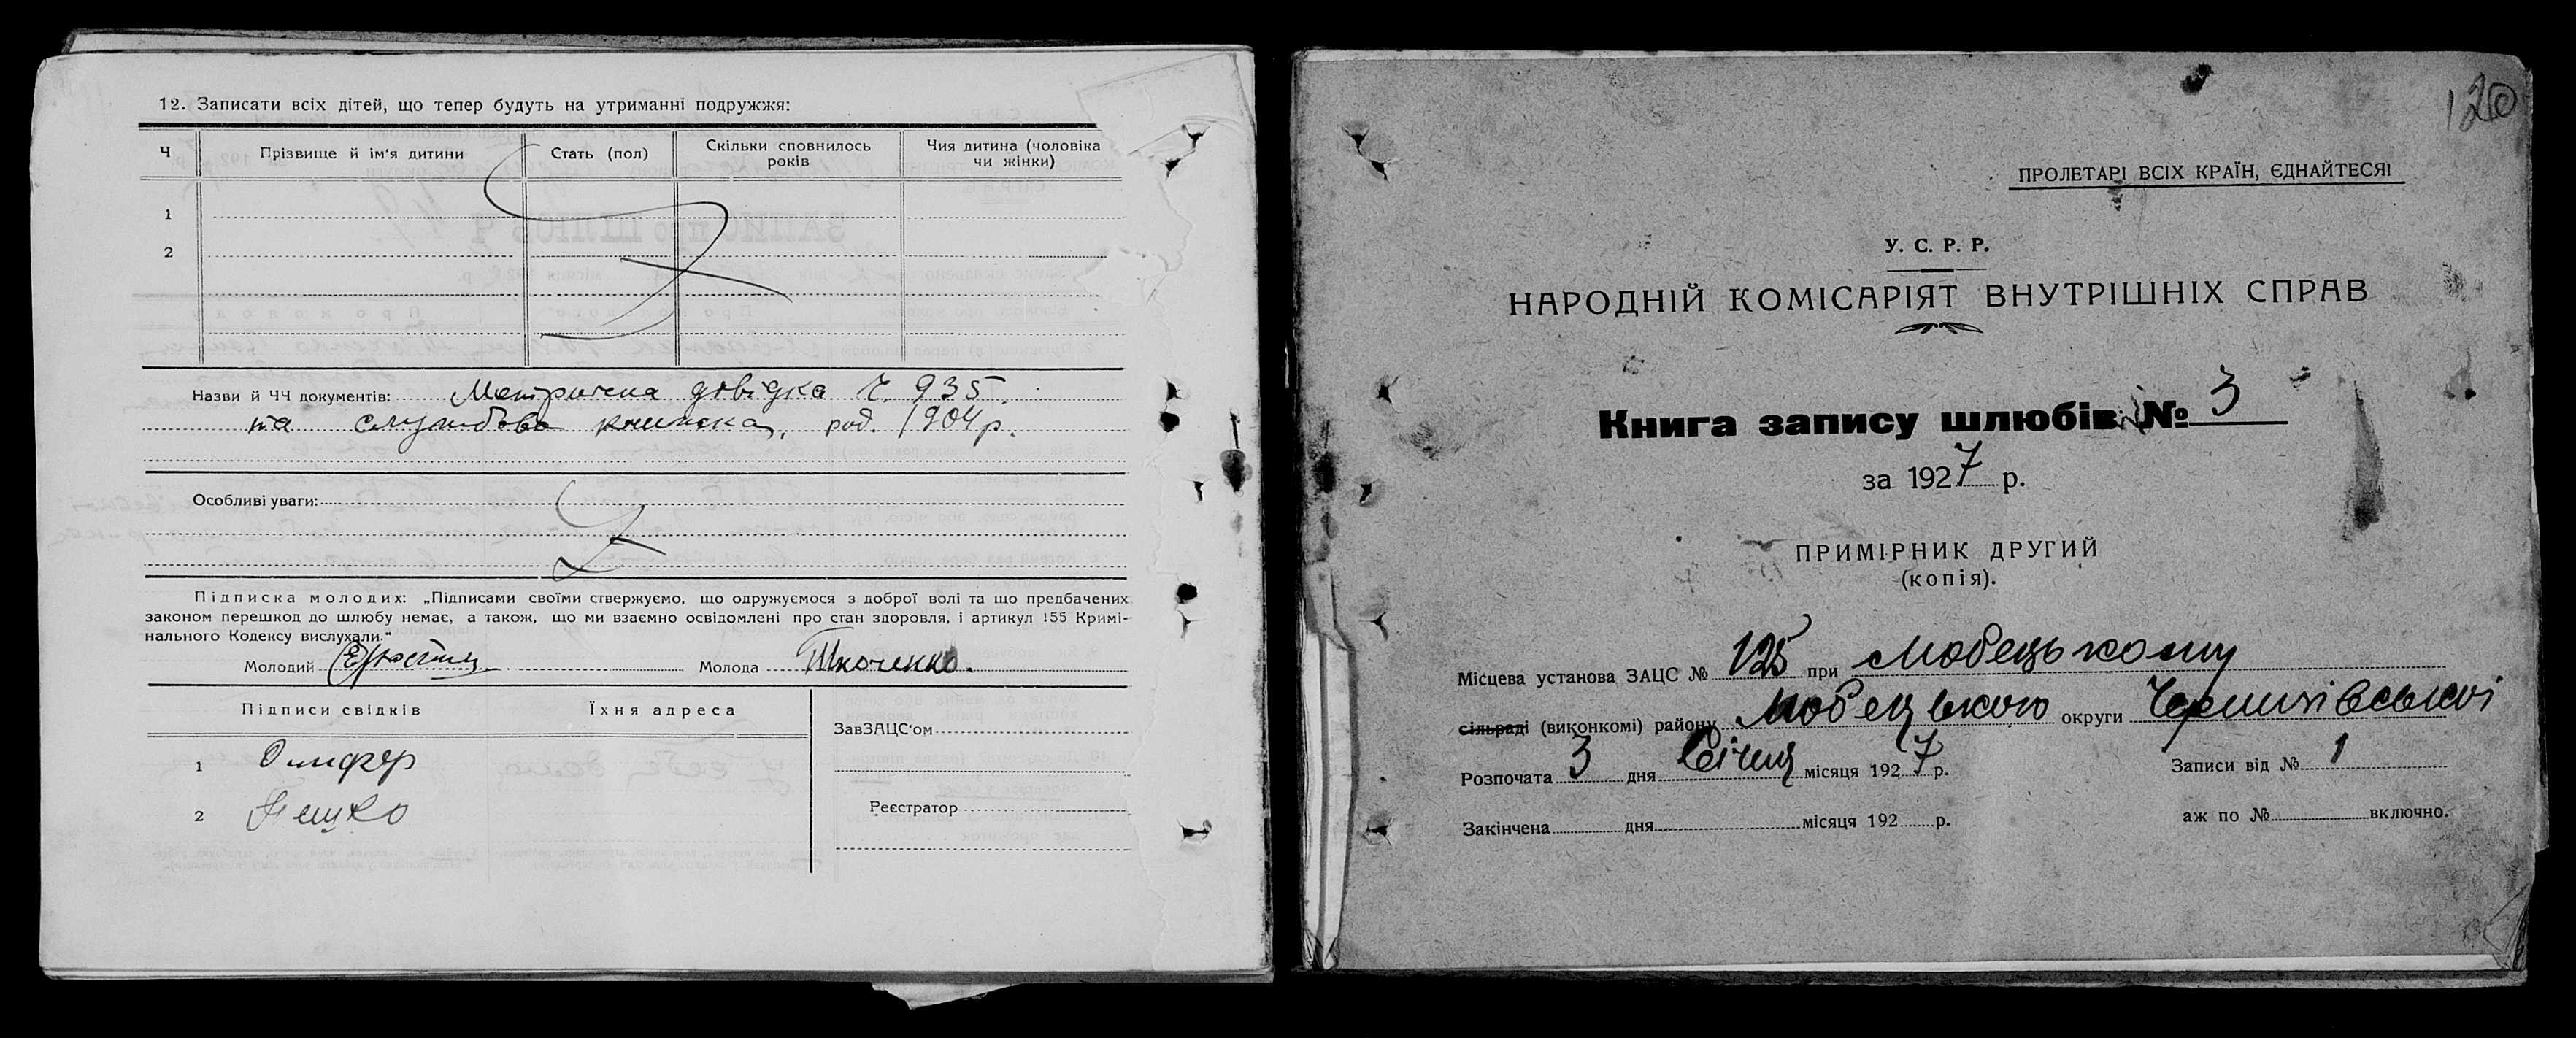 12. Записати всіх дітей, що тепер будуть на утриманні подружжя:
Ч Прізвище й ім'я дитини Стать (пол) Скільки сповнилось років Чия дитина (чоловіка чи жінки)
1
2
Назви й ЧЧ документів: Метрична довідка Ч. 935.
та службова книжка, род. 1904 р.
Особливі уваги:
Підписка молодих: „Підписами своїми стверджуємо, що одружуємося з доброї волі та що предбачених
законом перешкод до шлюбу немає, а також, що ми взаємно освідомлені про стан здоровля, і артикул 155 Кримі-
нального Кодексу вислухали."
Молодий Молода Ткоченко.
Підписи свідків Їхня адреса
ЗавЗАЦС'ом
1 Олифер
2 Пешко
Реєстратор
120
ПРОЛЕТАРІ ВСІХ КРАЇН, ЄДНАЙТЕСЯ!
У. С. Р. Р.
НАРОДНІЙ КОМІСАРІЯТ ВНУТРІШНІХ СПРАВ
Книга запису шлюбів № 3
за 1927 р.
ПРИМІРНИК ДРУГИЙ
(копія).
Місцева установа ЗАЦС № 125 при Любецькому
сільраді (виконкомі) району Любецького округи Чернигівської
Розпочата 3 дня Січня місяця 1927 р. Записи від № 1
Закінчена дня місяця 192 р. аж по № включно.